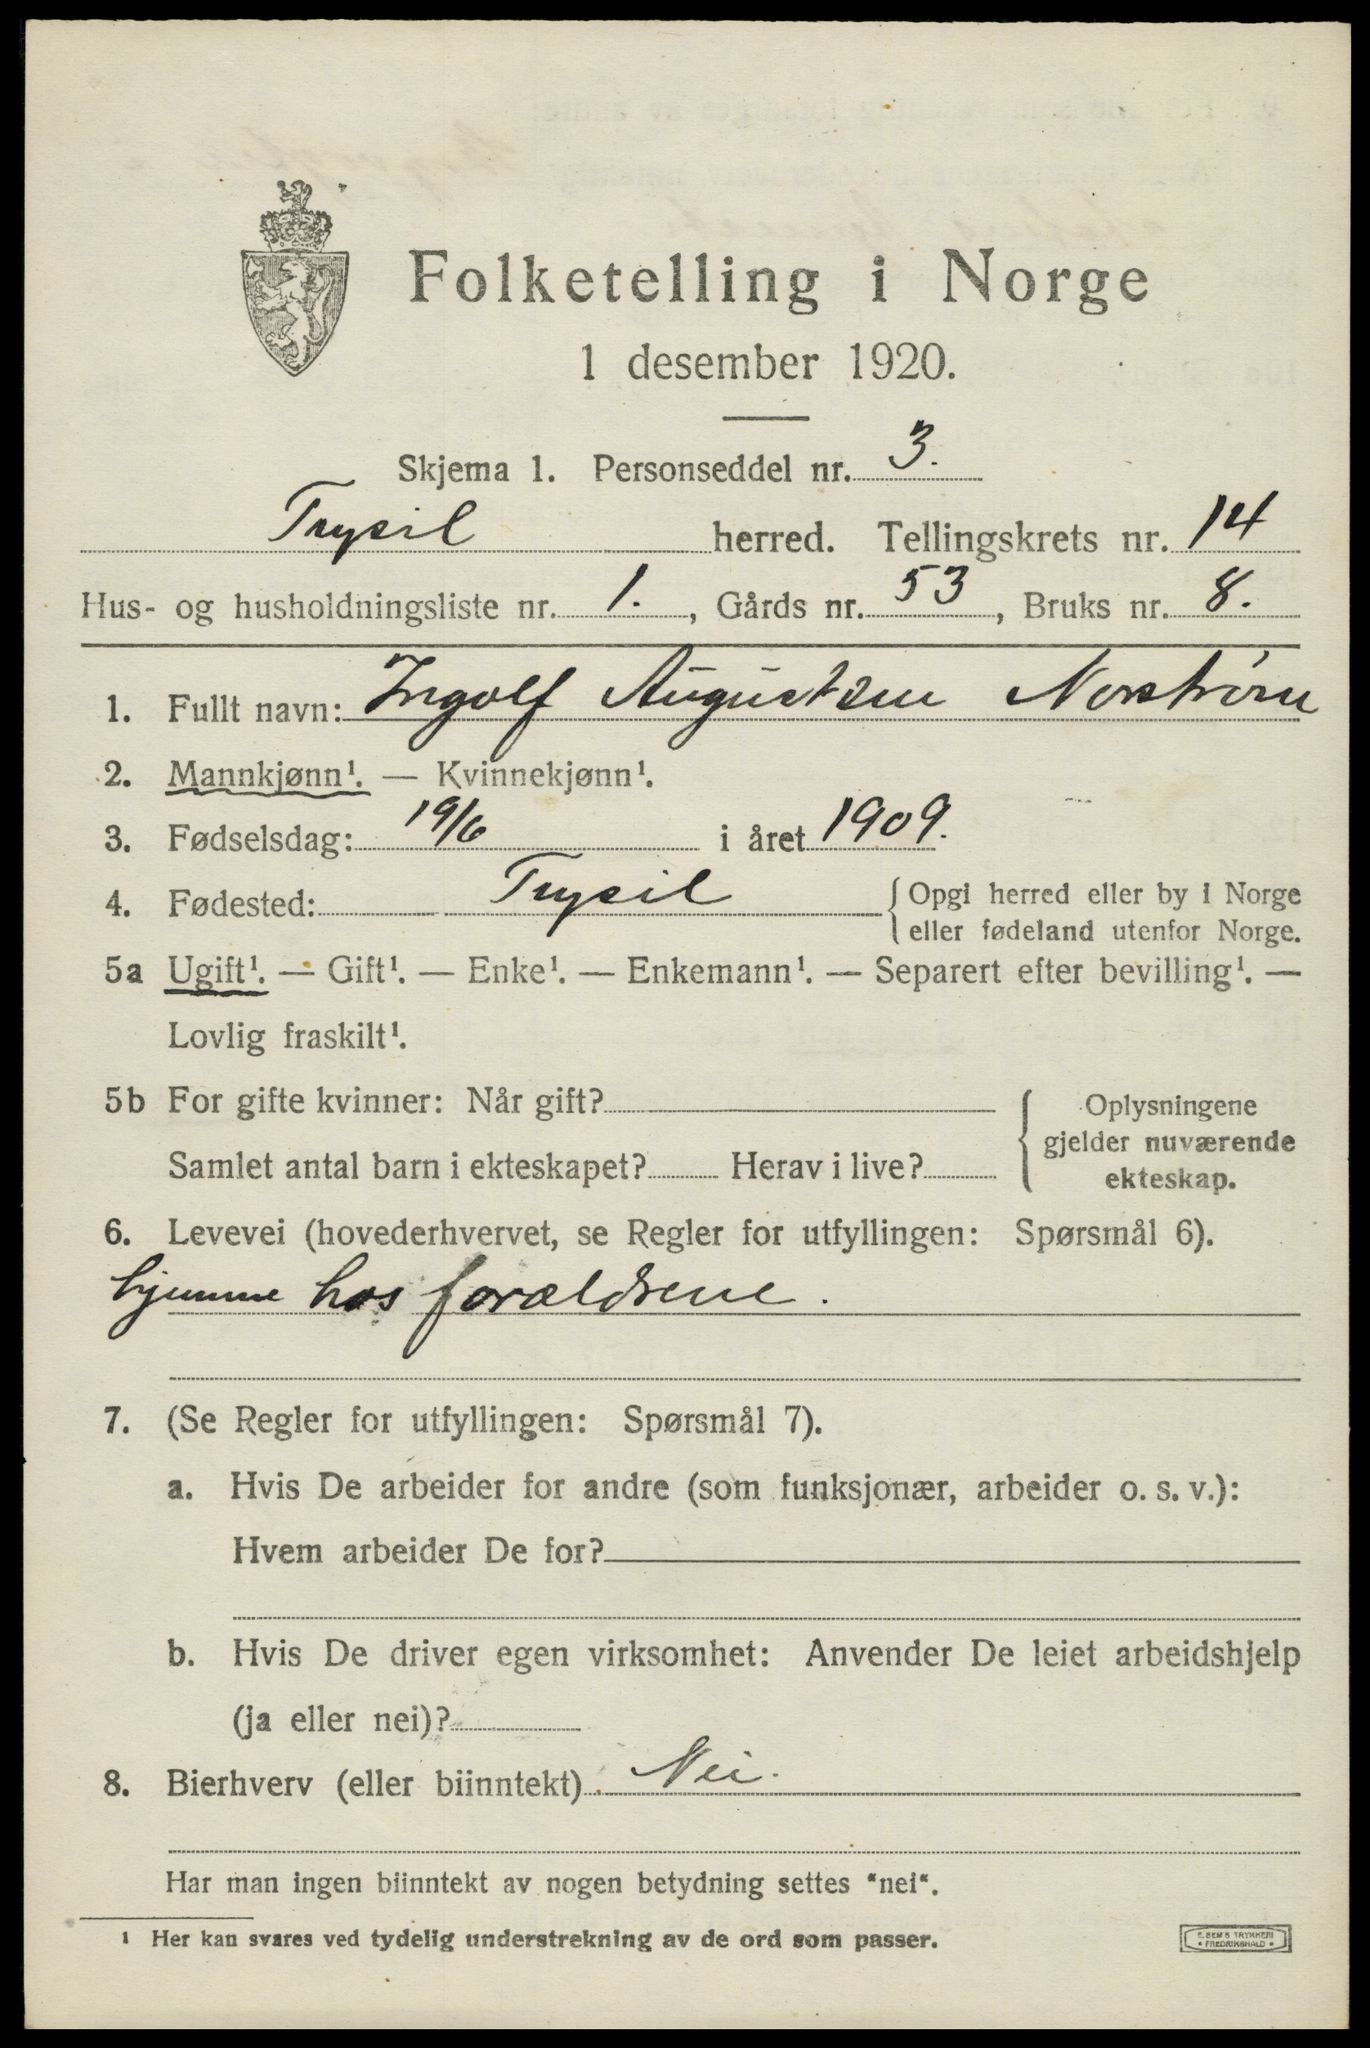 Folketelling i Norge
1 desember 1920.
Skjema 1. Personseddel nr. 3.
Trysil herred. Tellingskrets nr. 14
Hus- og husholdningsliste nr. 1., Gårds nr. 53, Bruks nr. 8.
1. Fullt navn: Ingolf Augustsen Norstrøm
2. Mannkjønn¹. — Kvinnekjønn¹.
3. Fødselsdag: 19/6 i året 1909.
4. Fødested: Trysil { Opgi herred eller by i Norge
eller fødeland utenfor Norge.
5a Ugift¹. — Gift¹. — Enke¹. — Enkemann¹. — Separert efter bevilling¹. —
Lovlig fraskilt¹.
5b For gifte kvinner: Når gift? { Oplysningene
gjelder nuværende
Samlet antal barn i ekteskapet? Herav i live?
ekteskap.
6. Levevei (hovederhvervet, se Regler for utfyllingen: Spørsmål 6).
hjemme hos forældrene.
7. (Se Regler for utfyllingen: Spørsmål 7).
a. Hvis De arbeider for andre (som funksjonær, arbeider o. s. v.):
Hvem arbeider De for?
b. Hvis De driver egen virksomhet: Anvender De leiet arbeidshjelp
(ja eller nei)?
8. Bierhverv (eller biinntekt) Nei.
Har man ingen biinntekt av nogen betydning settes "nei".
¹ Her kan svares ved tydelig understrekning av de ord som passer.
E. SEM'S TRYKKERI
• FREDRIKSHALD •